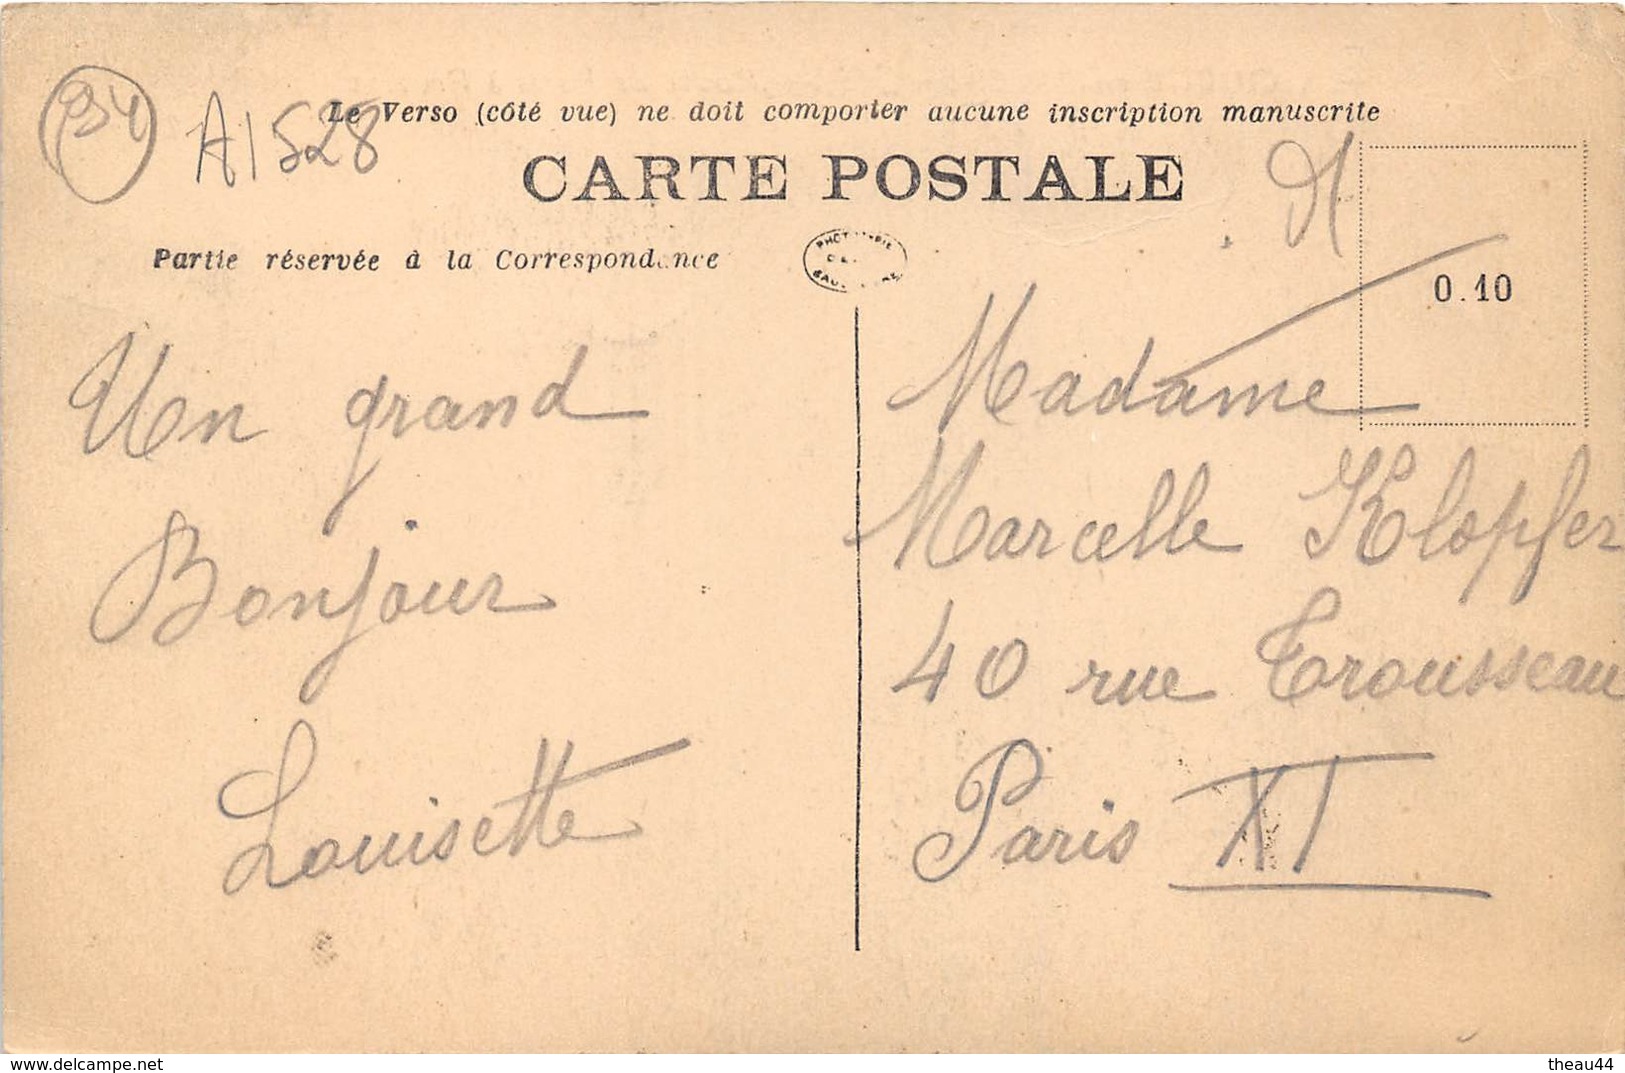 A1528
Le Verso (côté vue) ne doit comporter aucune inscription manuscrite
CARTE POSTALE
Partie réservée à la Correspondance
0.10
Un grand
Bonjour
Louisette
Madame
Marcelle Klopfer
40 rue Trousseau
Paris XI
delcampe.net
theau44